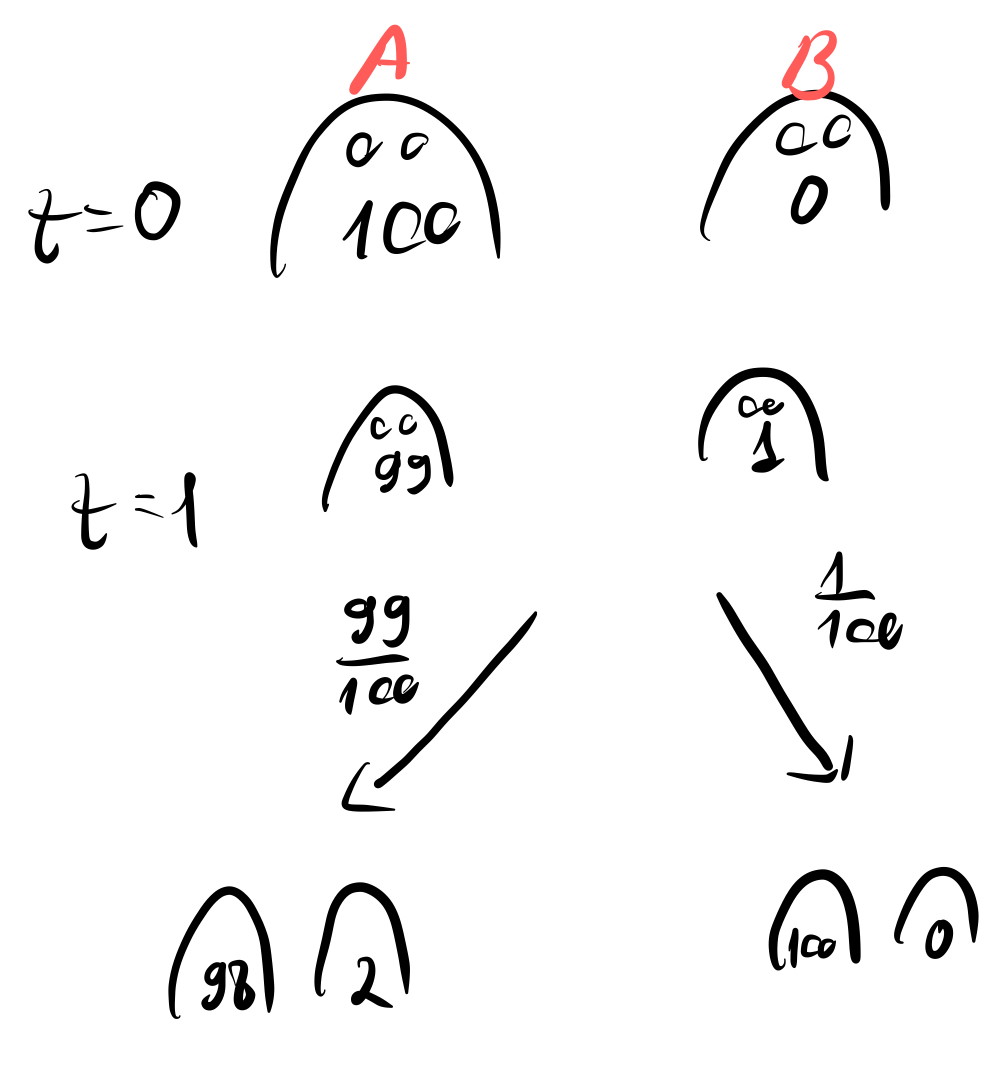 A B
t=0 100 0
t=1 99 1
99/100 1/100
98 2 100 0